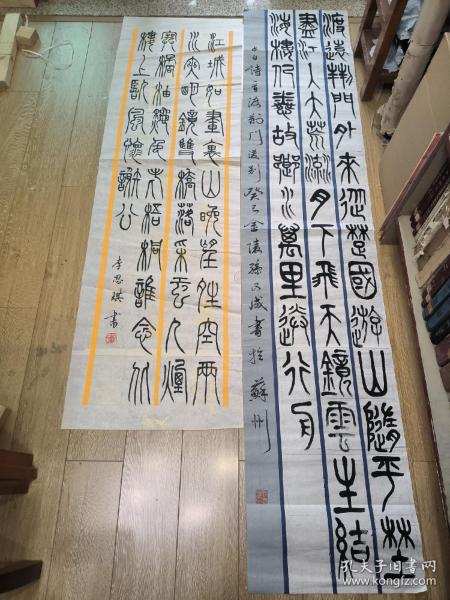 渡遠荆門外來從楚國遊山隨平野
盡江入大荒流月下飛天鏡雲生結
海樓仍憐故鄉水萬里送行舟
太白詩一首渡荆門送别 癸巳金陵孫又成書於蘇州
江城如畫裏山晚望晴空兩
水夾明鏡雙橋落彩虹人煙
寒橘柚秋色老梧桐誰念北
樓上臨風懷謝公
李思琪書
孔夫子旧书网
www.kongfz.com